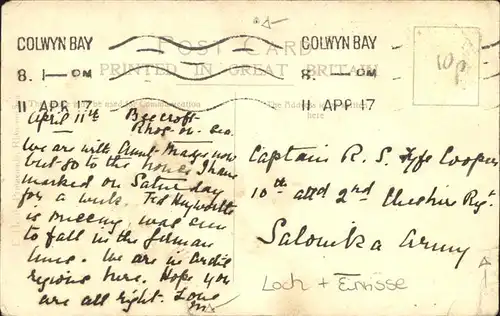 POST CARD
PRINTED IN GREAT BRITAIN
COLWYN BAY
8. 1— PM
11 APR 17
COLWYN BAY
8. — PM
11 APR 17
10p
The Address
here
April 11th Beecroft
Rhos-on-Sea
We are with Aunt Madge now
but go to the house I have
marked on Saturday
for a week. Ted Hayworth
is missing, was seen
to fall in the German
lines. We are in arctic
regions here. Hope you
are all right. Love
Captain R. S. Fyfe Cooper
10th attd 2nd Cheshire Regt
Salonika Army
Loch +